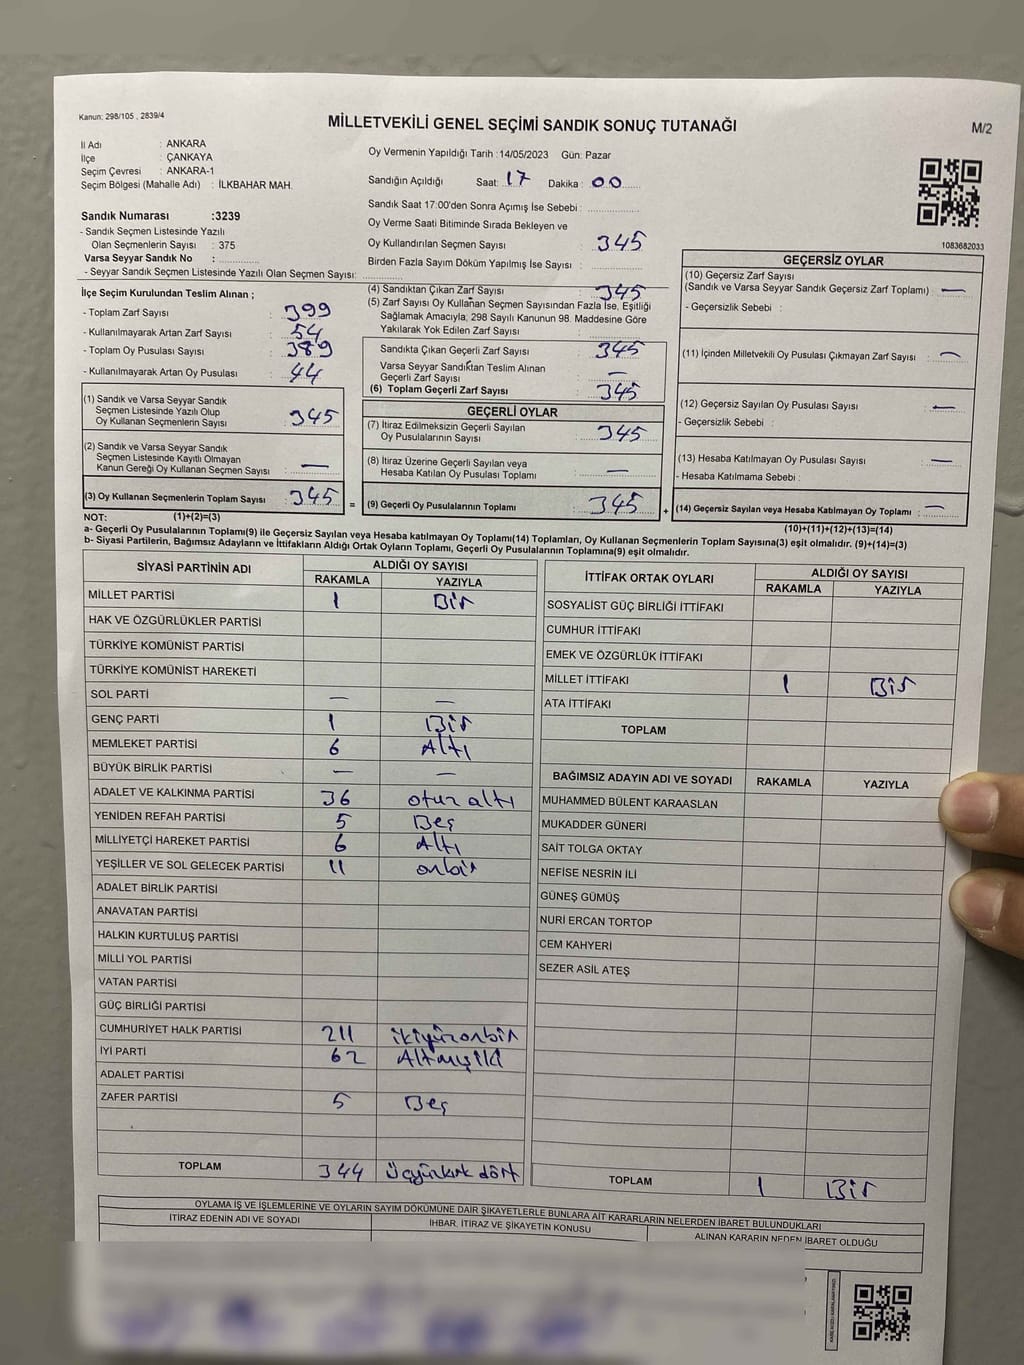 Kanun: 298/105 , 2839/4
MİLLETVEKİLİ GENEL SEÇİMİ SANDIK SONUÇ TUTANAĞI
M/2
İl Adı : ANKARA
İlçe : ÇANKAYA
Seçim Çevresi : ANKARA-1
Seçim Bölgesi (Mahalle Adı) : İLKBAHAR MAH.
Sandık Numarası :3239
- Sandık Seçmen Listesinde Yazılı
Olan Seçmenlerin Sayısı : 375
Varsa Seyyar Sandık No :
- Seyyar Sandık Seçmen Listesinde Yazılı Olan Seçmen Sayısı:
Oy Vermenin Yapıldığı Tarih : 14/05/2023 Gün: Pazar
Sandığın Açıldığı Saat: 17 Dakika : 00
Sandık Saat 17:00'den Sonra Açımış İse Sebebi :
Oy Verme Saati Bitiminde Sırada Bekleyen ve
Oy Kullandırılan Seçmen Sayısı : 345
Birden Fazla Sayım Döküm Yapılmış İse Sayısı :
1083682033
İlçe Seçim Kurulundan Teslim Alınan ;
- Toplam Zarf Sayısı : 399
- Kullanılmayarak Artan Zarf Sayısı : 54
- Toplam Oy Pusulası Sayısı : 389
- Kullanılmayarak Artan Oy Pusulası : 44
(1) Sandık ve Varsa Seyyar Sandık
Seçmen Listesinde Yazılı Olup
Oy Kullanan Seçmenlerin Sayısı : 345
(2) Sandık ve Varsa Seyyar Sandık
Seçmen Listesinde Kayıtlı Olmayan
Kanun Gereği Oy Kullanan Seçmen Sayısı : —
(3) Oy Kullanan Seçmenlerin Toplam Sayısı : 345 =
(4) Sandıktan Çıkan Zarf Sayısı : 345
(5) Zarf Sayısı Oy Kullanan Seçmen Sayısından Fazla İse, Eşitliği
Sağlamak Amacıyla; 298 Sayılı Kanunun 98. Maddesine Göre
Yakılarak Yok Edilen Zarf Sayısı :
Sandıkta Çıkan Geçerli Zarf Sayısı : 345
Varsa Seyyar Sandıktan Teslim Alınan
Geçerli Zarf Sayısı : —
(6) Toplam Geçerli Zarf Sayısı : 345
GEÇERLİ OYLAR
(7) İtiraz Edilmeksizin Geçerli Sayılan
Oy Pusulalarının Sayısı : 345
(8) İtiraz Üzerine Geçerli Sayılan veya
Hesaba Katılan Oy Pusulası Toplamı : —
(9) Geçerli Oy Pusulalarının Toplamı : 345 +
GEÇERSİZ OYLAR
(10) Geçersiz Zarf Sayısı
(Sandık ve Varsa Seyyar Sandık Geçersiz Zarf Toplamı) : —
- Geçersizlik Sebebi :
(11) İçinden Milletvekili Oy Pusulası Çıkmayan Zarf Sayısı : —
(12) Geçersiz Sayılan Oy Pusulası Sayısı : —
- Geçersizlik Sebebi :
(13) Hesaba Katılmayan Oy Pusulası Sayısı : —
- Hesaba Katılmama Sebebi :
(14) Geçersiz Sayılan veya Hesaba Katılmayan Oy Toplamı : —
NOT: (1)+(2)=(3)
(10)+(11)+(12)+(13)=(14)
a- Geçerli Oy Pusulalarının Toplamı(9) ile Geçersiz Sayılan veya Hesaba katılmayan Oy Toplamı(14) Toplamları, Oy Kullanan Seçmenlerin Toplam Sayısına(3) eşit olmalıdır. (9)+(14)=(3)
b- Siyasi Partilerin, Bağımsız Adayların ve İttifakların Aldığı Ortak Oyların Toplamı, Geçerli Oy Pusulalarının Toplamına(9) eşit olmalıdır.
SİYASİ PARTİNİN ADI ALDIĞI OY SAYISI
RAKAMLA YAZIYLA
MİLLET PARTİSİ 1 Bir
HAK VE ÖZGÜRLÜKLER PARTİSİ
TÜRKİYE KOMÜNİST PARTİSİ
TÜRKİYE KOMÜNİST HAREKETİ
SOL PARTİ — —
GENÇ PARTİ 1 Bir
MEMLEKET PARTİSİ 6 Altı
BÜYÜK BİRLİK PARTİSİ — —
ADALET VE KALKINMA PARTİSİ 36 otuz altı
YENİDEN REFAH PARTİSİ 5 Beş
MİLLİYETÇİ HAREKET PARTİSİ 6 Altı
YEŞİLLER VE SOL GELECEK PARTİSİ 11 onbir
ADALET BİRLİK PARTİSİ
ANAVATAN PARTİSİ
HALKIN KURTULUŞ PARTİSİ
MİLLİ YOL PARTİSİ
VATAN PARTİSİ
GÜÇ BİRLİĞİ PARTİSİ
CUMHURİYET HALK PARTİSİ 211 ikiyüzonbir
İYİ PARTİ 62 Altmışiki
ADALET PARTİSİ
ZAFER PARTİSİ 5 Beş
TOPLAM 344 üçyüzkırk dört
İTTİFAK ORTAK OYLARI ALDIĞI OY SAYISI
RAKAMLA YAZIYLA
SOSYALİST GÜÇ BİRLİĞİ İTTİFAKI
CUMHUR İTTİFAKI
EMEK VE ÖZGÜRLÜK İTTİFAKI
MİLLET İTTİFAKI 1 Bir
ATA İTTİFAKI
TOPLAM
BAĞIMSIZ ADAYIN ADI VE SOYADI RAKAMLA YAZIYLA
MUHAMMED BÜLENT KARAASLAN
MUKADDER GÜNERİ
SAİT TOLGA OKTAY
NEFİSE NESRİN İLİ
GÜNEŞ GÜMÜŞ
NURİ ERCAN TORTOP
CEM KAHYERİ
SEZER ASİL ATEŞ
TOPLAM 1 Bir
OYLAMA İŞ VE İŞLEMLERİNE VE OYLARIN SAYIM DÖKÜMÜNE DAİR ŞİKAYETLERLE BUNLARA AİT KARARLARIN NELERDEN İBARET BULUNDUKLARI
İTİRAZ EDENİN ADI VE SOYADI İHBAR, İTİRAZ VE ŞİKAYETİN KONUSU ALINAN KARARIN NEDEN İBARET OLDUĞU